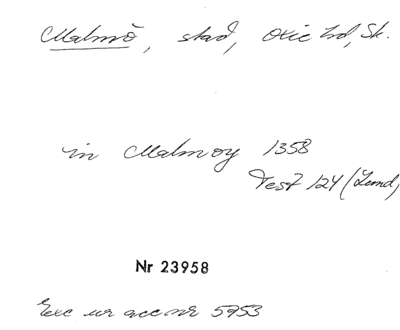 Malmö, stad, Oxie hd, Sk.
in Malmoy 1358
Test 124 (Lund)
Nr 23958
Exc ur acc nr 5953